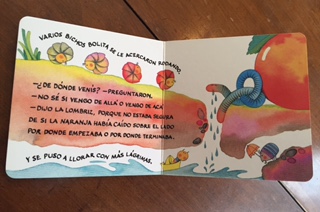 VARIOS BICHOS BOLITA SE LE ACERCARON RODANDO.
—¿DE DÓNDE VENÍS? —PREGUNTARON.
—NO SÉ SI VENGO DE ALLÁ O VENGO DE ACÁ
—DIJO LA LOMBRIZ, PORQUE NO ESTABA SEGURA
DE SI LA NARANJA HABÍA CAÍDO SOBRE EL LADO
POR DONDE EMPEZABA O POR DONDE TERMINABA.
Y SE PUSO A LLORAR CON MÁS LÁGRIMAS.